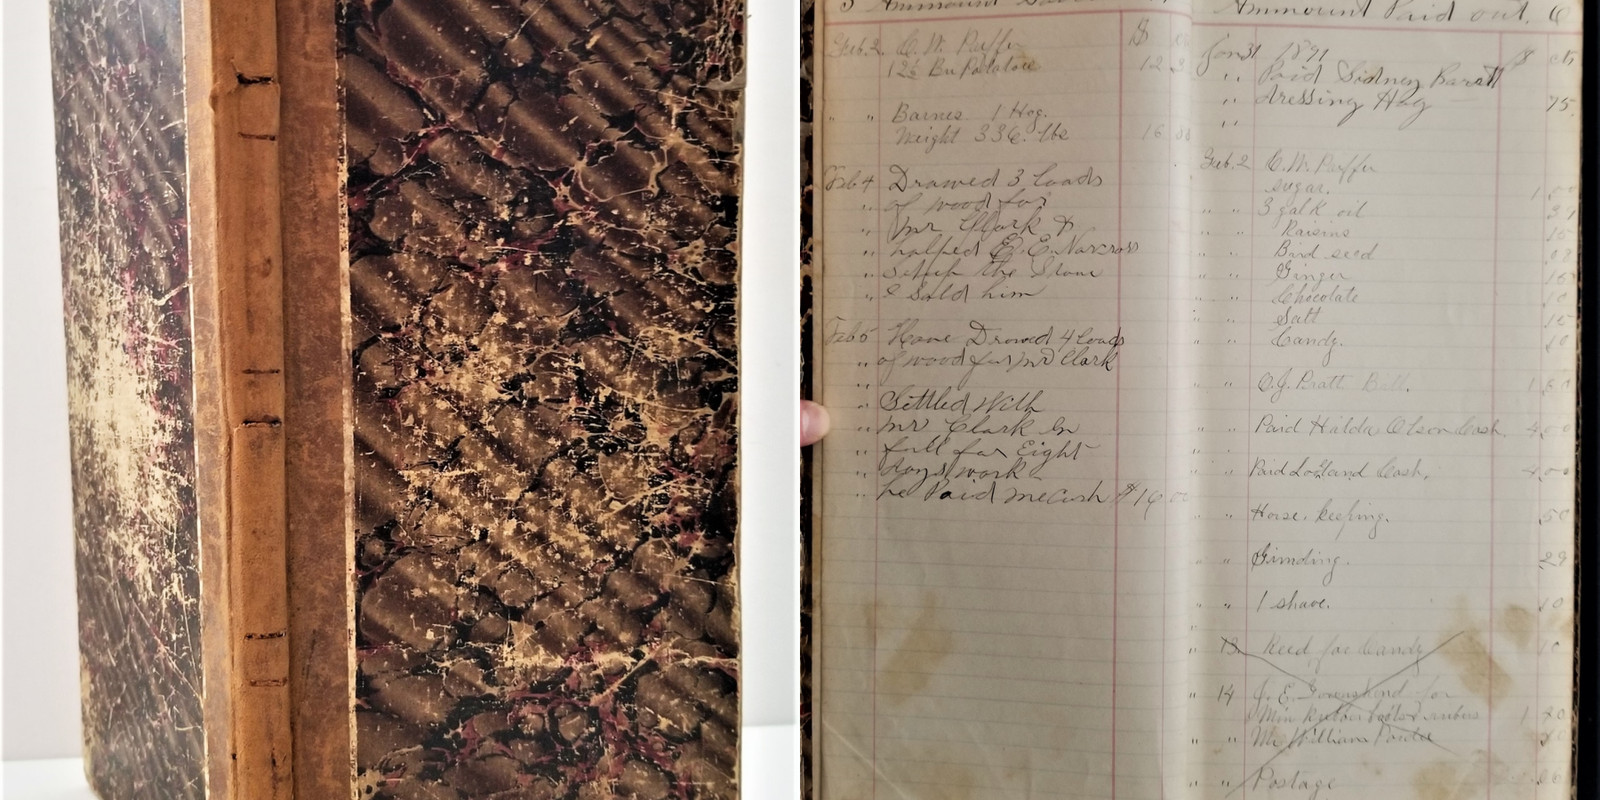 5 Ammount
Feb. 2. C. W. Puffer $
12½ Bu Potatoes 12 3
" " Barnes 1 Hog.
Weight 336. lbs 16
Feb 4 Drawed 3 loads
" of wood for
" Mr Clark &
" helped E. E. Norcross
" Settup the Stove
" I Sold him
Feb 5 Have Drawed 4 loads
" of wood for Mr Clark
"
" Settled With
" Mr Clark in
" full for Eight
" days work
" he Paid me Cash $16 00
Ammount Paid out. 6
Jan 31 1891 $ cts
" Paid Sidney Barett
" dressing Hog 75
"
Feb. 2 C. W. Puffer
sugar. 1.
" " 3 gal K oil
" " Raisins 15
" " Bird seed
" " Ginger
" " Chocolate 10
" " Salt 15
" " Candy. 10
" " O. J. Pratt Bill.
" " Paid Hilda Olson Cash. 4.00
" " Paid Cash. 4.00
" " Horse. keeping. 50
" " Grinding. 29
" " 1 shave. 10
"
" 13 Reed for Candy 10
" 14 E. for
rubers 1
" " Mr William
" " Postage